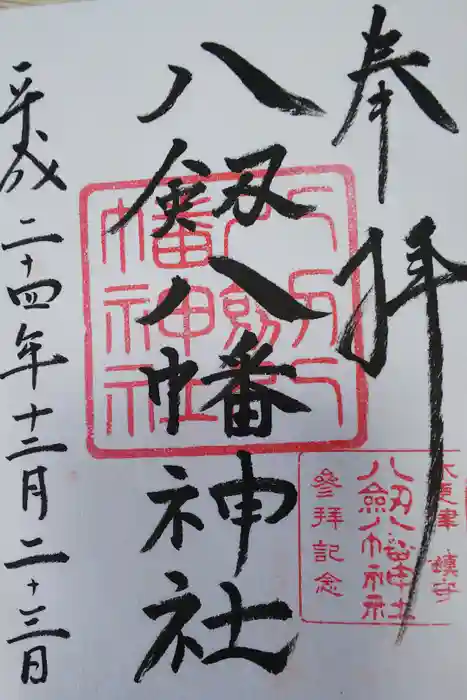 奉拝
八劔八幡神社
平成二十四年十二月二十三日
八劔八幡神社
木更津 鎮守
八劔八幡神社
參拜記念